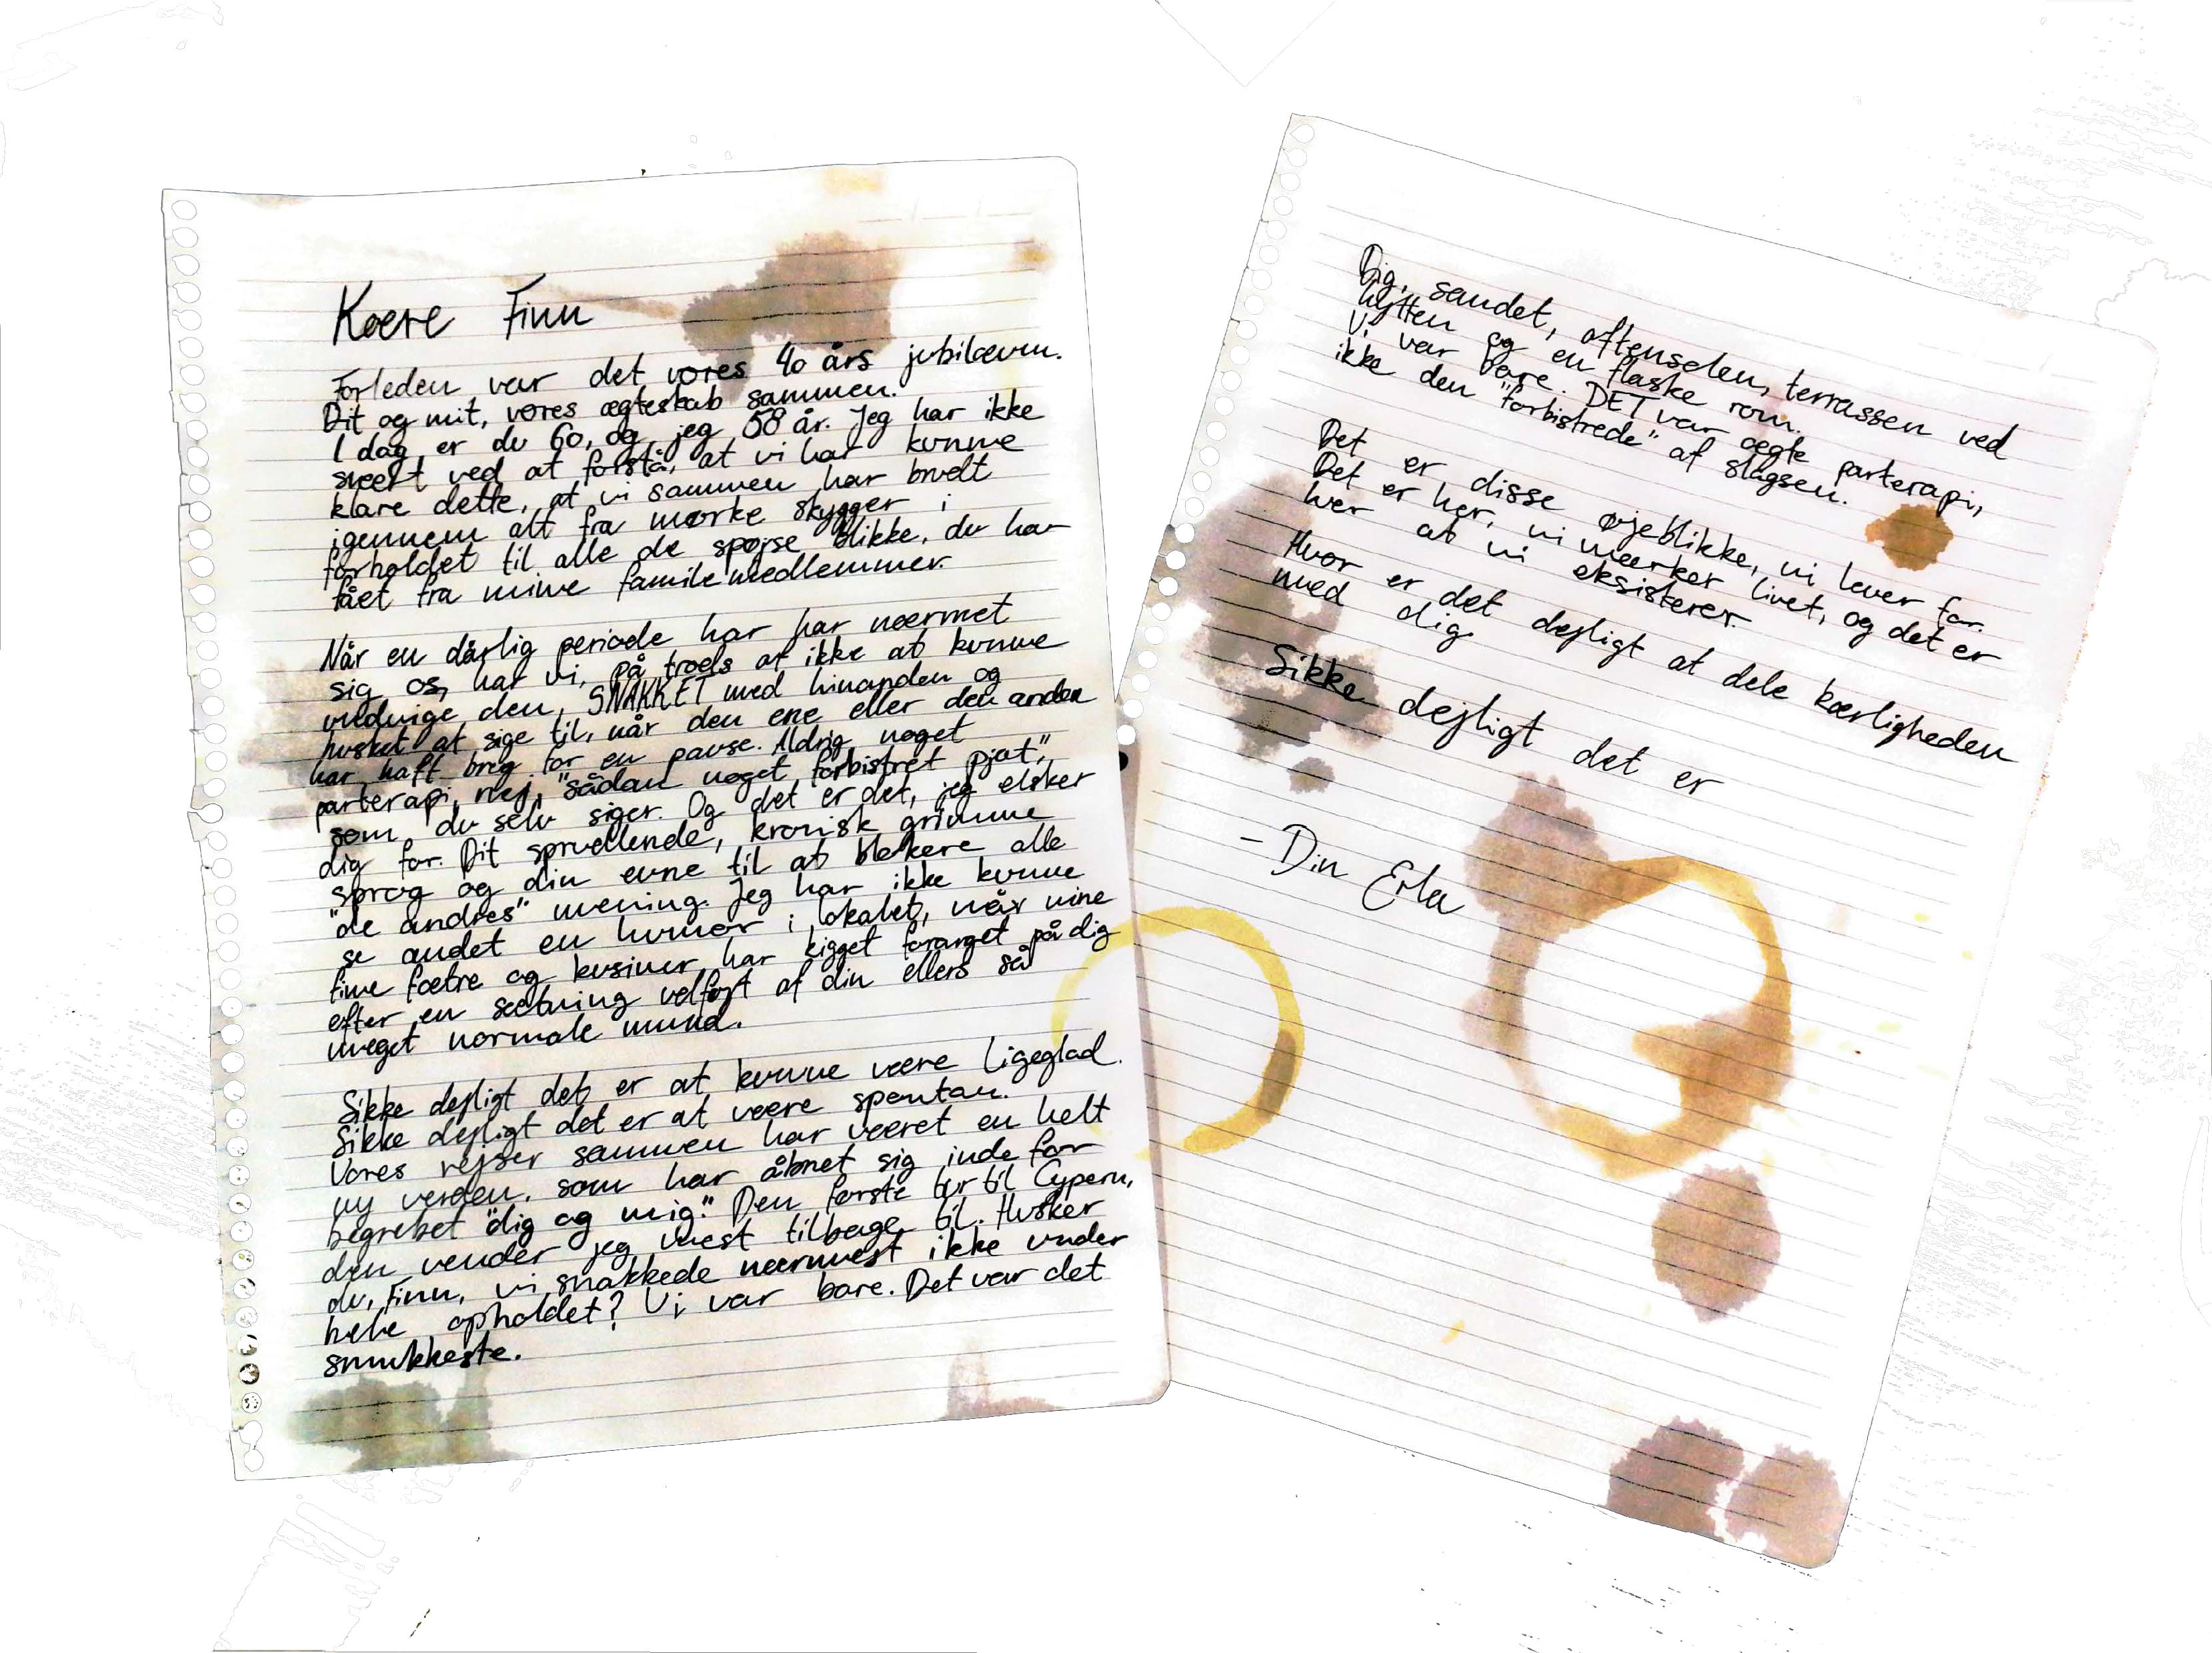 Kære Finn
Forleden var det vores 40 års jubilæum.
Dit og mit, vores ægteskab sammen.
I dag er du 60, og jeg 58 år. Jeg har ikke
svært ved at forstå, at vi har kunne
klare dette, at vi sammen har bruelt
igennem alt fra mørke skygger i
forholdet til alle de spøjse blikke, du har
fået fra mine familemedlemmer.
Når en dårlig periode har har nærmet
sig os, har vi, på troels af ikke at kunne
undvige den, SNAKKET med hinanden og
husket at sige til, når den ene eller den anden
har haft brug for en pause. Aldrig noget
parterapi, nej, "sådan noget forbistret pjat",
som du selv siger. Og det er det, jeg elsker
dig for. Dit spruellende, kronisk grimme
sprog og din evne til at blokere alle
"de andres" mening. Jeg har ikke kunne
se andet en humor i lokalet, når mine
fine fætre og kusiner har kigget forarget på dig
efter en sætning velføjt af din ellers så
meget normale mund.
Sikke dejligt det er at kunne være ligeglad.
Sikke dejligt det er at være spontan.
Vores rejser sammen har været en helt
ny verden, som har åbnet sig inde for
begrebet "dig og mig." Den første tur til Cypern,
den vender jeg mest tilbage til. Husker
du, Finn, vi snakkede nærmest ikke under
hele opholdet? Vi var bare. Det var det
smukkeste.
Dig, sandet, aftensolen, terrassen ved
hytten og en flaske rom.
Vi var bare. DET var ægte parterapi,
ikke den "forbistrede" af slagsen.
Det er disse øjeblikke, vi lever for.
Det er her, vi mærker livet, og det er
her at vi eksisterer.
Hvor er det dejligt at dele kærligheden
med dig.
Sikke dejligt det er
- Din Erla